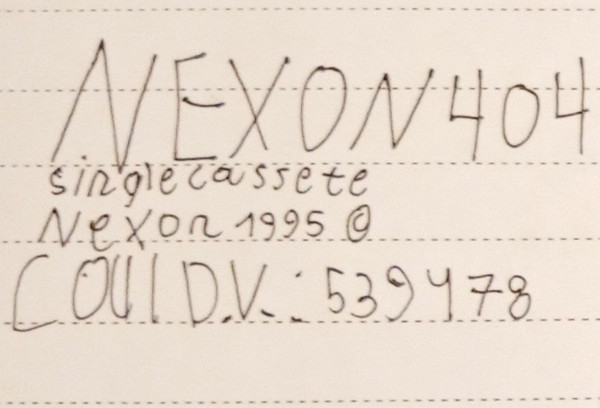 NEXON404
singlecassete
Nexon 1995 ©
COUID.V.: 539478